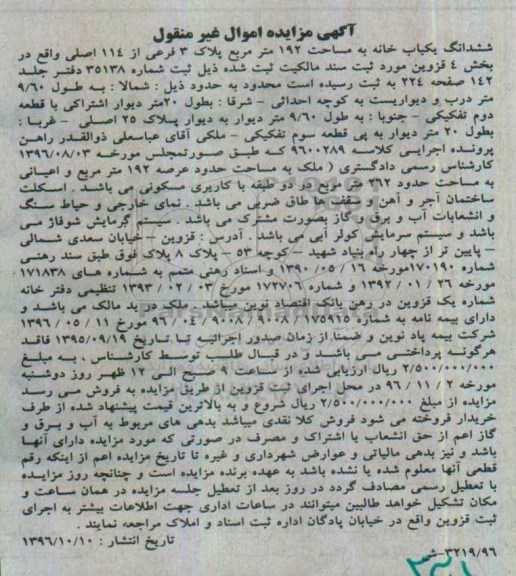 آگهی مزایده اموال غیر منقول
ششدانگ یکباب خانه به مساحت ۱۹۲ متر مربع پلاک ۳ فرعی از ۱۱۴ اصلی واقع در
بخش ۴ قزوین مورد ثبت سند مالکیت ثبت شده ذیل ثبت شماره ۳۵۱۳۸ دفتر جلد
۱۴۲ صفحه ۲۲۴ به ثبت رسیده است محدود به حدود ذیل : شمالا : به طول ۹/۶۰
متر درب و دیواریست به کوچه احداثی – شرقا : بطول ۲۰متر دیوار اشتراکی با قطعه
دوم تفکیکی – جنوبا : به طول ۹/۶۰ متر دیوار به دیوار پلاک ۲۵ اصلی – غربا :
بطول ۲۰ متر دیوار به پی قطعه سوم تفکیکی – ملکی آقای عباسعلی ذوالقدر راهن
پرونده اجرایی کلاسه ۹۶۰۰۲۸۹ که طبق صورتمجلس مورخه ۱۳۹۶/۰۸/۰۳
کارشناس رسمی دادگستری ( ملک به مساحت حدود عرصه ۱۹۲ متر مربع و اعیانی
به مساحت حدود ۲۶۲ متر مربع در دو طبقه با کاربری مسکونی می باشد . اسکلت
ساختمان آجر و آهن و سقف ها طاق ضربی می باشد . نمای خارجی و حیاط سنگ
و انشعابات آب و برق و گاز بصورت مشترک می باشد . سیستم گرمایش شوفاژ می
باشد و سیستم سرمایش کولر آبی می باشد . آدرس : قزوین – خیابان سعدی شمالی
– پایین تر از چهار راه بنیاد شهید – کوچه ۵۳ – پلاک ۸ پلاک فوق طبق سند رهنی
شماره ۱۷۰۱۹۰مورخه ۱۶ / ۰۵ / ۱۳۹۰ و اسناد رهنی متمم به شماره های ۱۷۱۸۳۸
مورخه ۲۶ / ۰۱ / ۱۳۹۲ و شماره ۱۷۲۷۰۶ مورخ ۰۳ / ۰۲ / ۱۳۹۳ تنظیمی دفتر خانه
شماره یک قزوین در رهن بانک اقتصاد نوین میباشد . ملک در ید مالک می باشد و
دارای بیمه نامه به شماره ۱۷۵۹۱۵ / ۹۰۰۸ / ۹۰۰۸ / ۰۴ / ۹۶ مورخ ۱۱ / ۰۵ / ۱۳۹۶
شرکت بیمه پاد نوین و ضمنا از زمان صدور اجرائیه تا تاریخ ۱۳۹۵/۰۹/۱۹ فاقد
هرگونه پرداختی می باشد و در قبال طلب توسط کارشناس ، به مبلغ
۲/۵۰۰/۰۰۰/۰۰۰ ریال ارزیابی شده از ساعت ۹ صبح الی ۱۲ ظهر روز دوشنبه
مورخه ۲ / ۱۱ / ۹۶ در محل اجرای ثبت قزوین از طریق مزایده به فروش می رسد
مزایده از مبلغ ۲/۵۰۰/۰۰۰/۰۰۰ ریال شروع و به بالاترین قیمت پیشنهاد شده از طرف
خریدار فروخته می شود فروش کلا نقدی میباشد بدهی های مربوط به آب و برق و
گاز اعم از حق انشعاب یا اشتراک و مصرف در صورتی که مورد مزایده دارای آنها
باشد و نیز بدهی مالیاتی و عوارض شهرداری و غیره تا تاریخ مزایده اعم از اینکه رقم
قطعی آنها معلوم شده یا نشده باشد به عهده برنده مزایده است و چنانچه روز مزایده
با تعطیل رسمی مصادف گردد در روز بعد از تعطیل جلسه مزایده در همان ساعت و
مکان تشکیل خواهد طالبین میتوانند در ساعات اداری جهت اطلاعات بیشتر به اجرای
ثبت قزوین واقع در خیابان پادگان اداره ثبت اسناد و املاک مراجعه نمایند .
تاریخ انتشار : ۱۳۹۶/۱۰/۱۰
۳۲۱۹/۹۶–ش